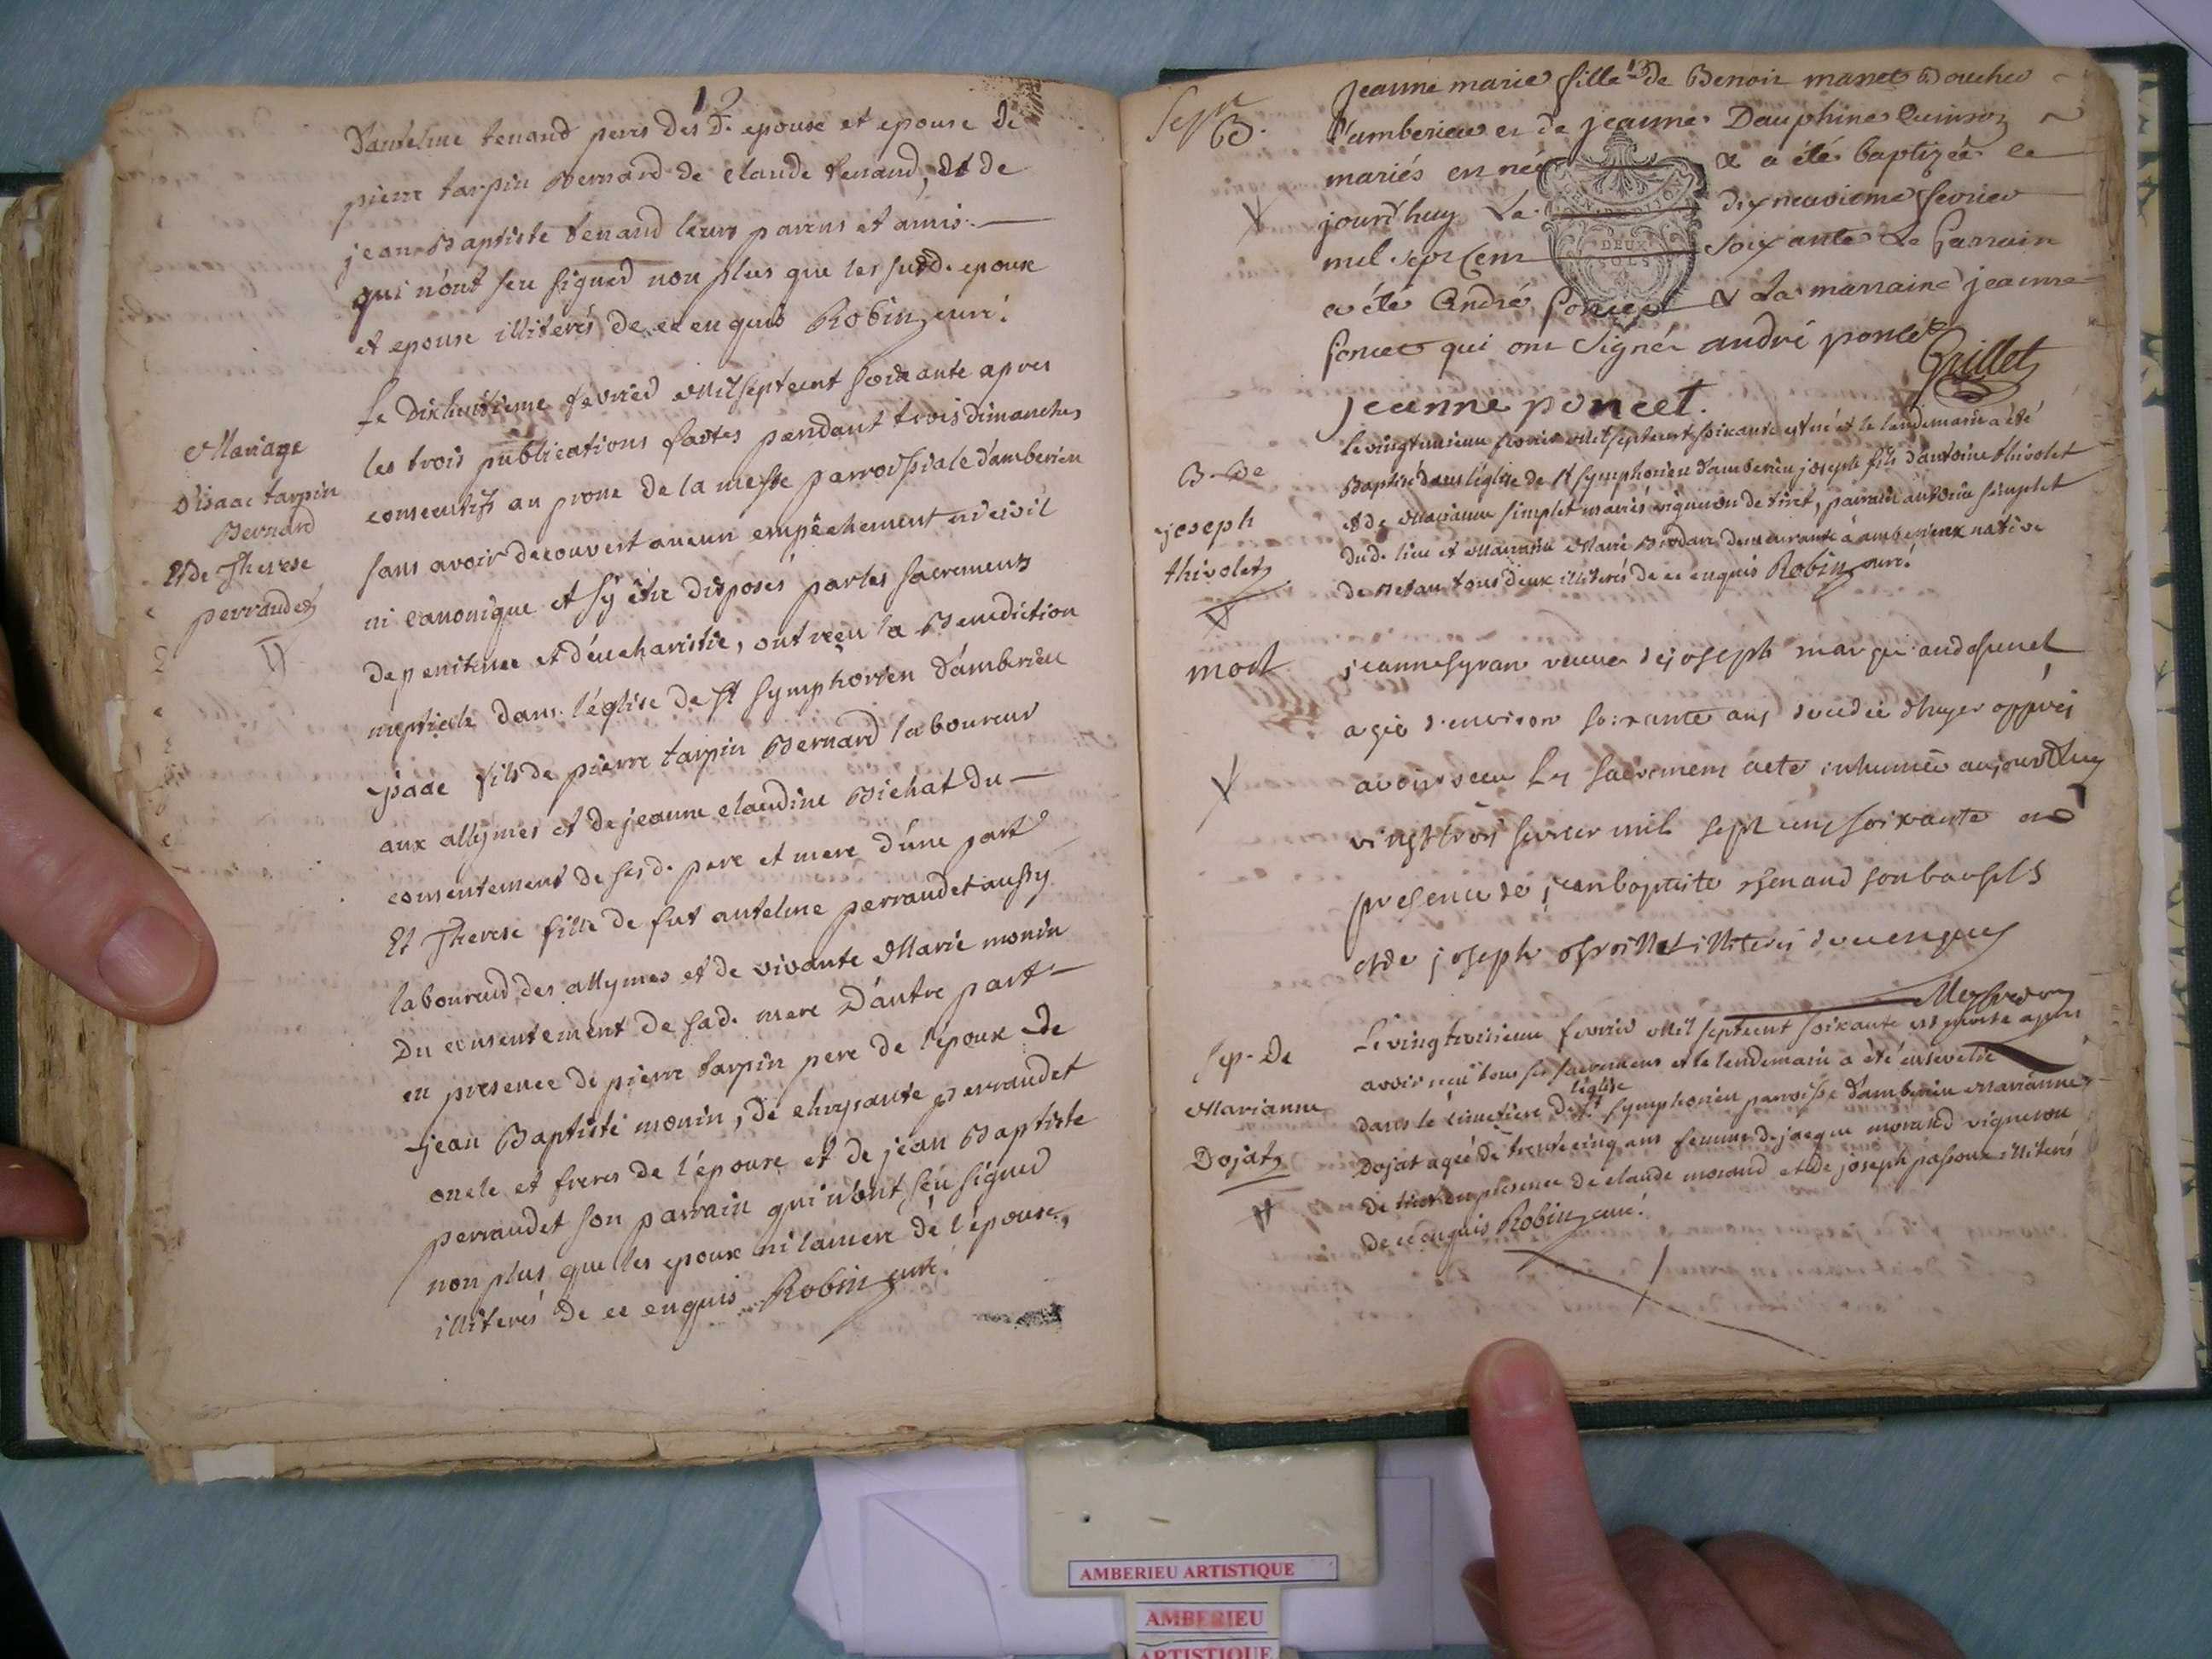 12
d'antelme tenand peres des d. epouse et epouse de
pierre tarpin Bernard de claude tenand, et de
jean Baptiste tenand leurs parens et amis.
qui n'ont sçu signer non plus que les susd. epoux
et epouse illiterés de ce enquis Robin curé.
Mariage
d'isaac tarpin
Bernard
Et de Therese
perraudet
Le dixhuitieme fevrier Mil septcent soixante apres
les trois publications faites pendant trois dimanches
consecutifs au prone de la messe parroissiale d'amberieu
sans avoir decouvert aucun empêchement ni civil
ni canonique et s'y être disposés par les sacrements
de penitence et d'eucharistie, ont reçu la Benediction
nuptiale dans l'église de St Symphorien d'amberieu
isaac fils de pierre tarpin Bernard laboureur
aux allymes et de jeanne claudine Bichat du
consentement de ses d. pere et mere d'une part
Et Therese fille de fut antelme perraudet aussy
laboureur des allymes et de vivante Marie monin
Du consentement de sad. mere D'autre part
en presence de pierre tarpin pere de l'époux de
jean Baptiste monin, de chrysante perraudet
oncle et freres de l'épouse et de jean Baptiste
perraudet son parrain qui n'ont sçu signer
non plus que les epoux ni la mere de l'épouse,
illiterés de ce enquis Robin curé.
13
Sepr
B.
jeanne marie fille de Benoit manet Boucher
d'amberieu et de jeanne Dauphine Quinson
mariés en née & a été baptizée ce
jourd'huy Le dixneuvieme fevrier
mil sept cent soixante Le Parrain
a été André Poncet & La marraine jeanne
Poncet qui ont signé andré poncet
Grillet
jeanne poncet.
GEN. DE DIJON
DEUX
SOLS
B. de
joseph
thivolet
Le vingtunieme fevrier Mil septcent soixante est né et le lendemain a été
Baptisé dans l'église de St Symphorien d'amberieu joseph fils d'antoine thivolet
et de Marianne simplet mariés vigneron de tiret, parrain antoine simplet
dud. lieu et Marraine Marie Brodare demeurante à amberieux native
de Betan tous deux illiterés de ce enquis Robin curé.
mort
jeanne veuve de joseph
agée d'environ soixante ans decedée d'hyer appres
avoir receu les sacrement a eté inhumée aujourdhuy
vingt trois fevrier mil sept cens soixante en
presence de jean baptiste son beaufils
et de joseph illiterés de ce enquis
Sep. De
Marianne
Dojat
Le vingtroisieme fevrier Mil septcent soixante est morte apres
avoir reçu tous ses sacremens et le lendemain a été ensevelie
dans le cimetiere de l'église St Symphorien parroisse d'amberieu Marianne
Dojat agée de trentecinq ans femme de jacque morand vigneron
de tiret en presence de claude morand et de joseph passoux illiterés
de ce enquis Robin curé.
AMBERIEU ARTISTIQUE
AMBERIEU
ARTISTIQUE